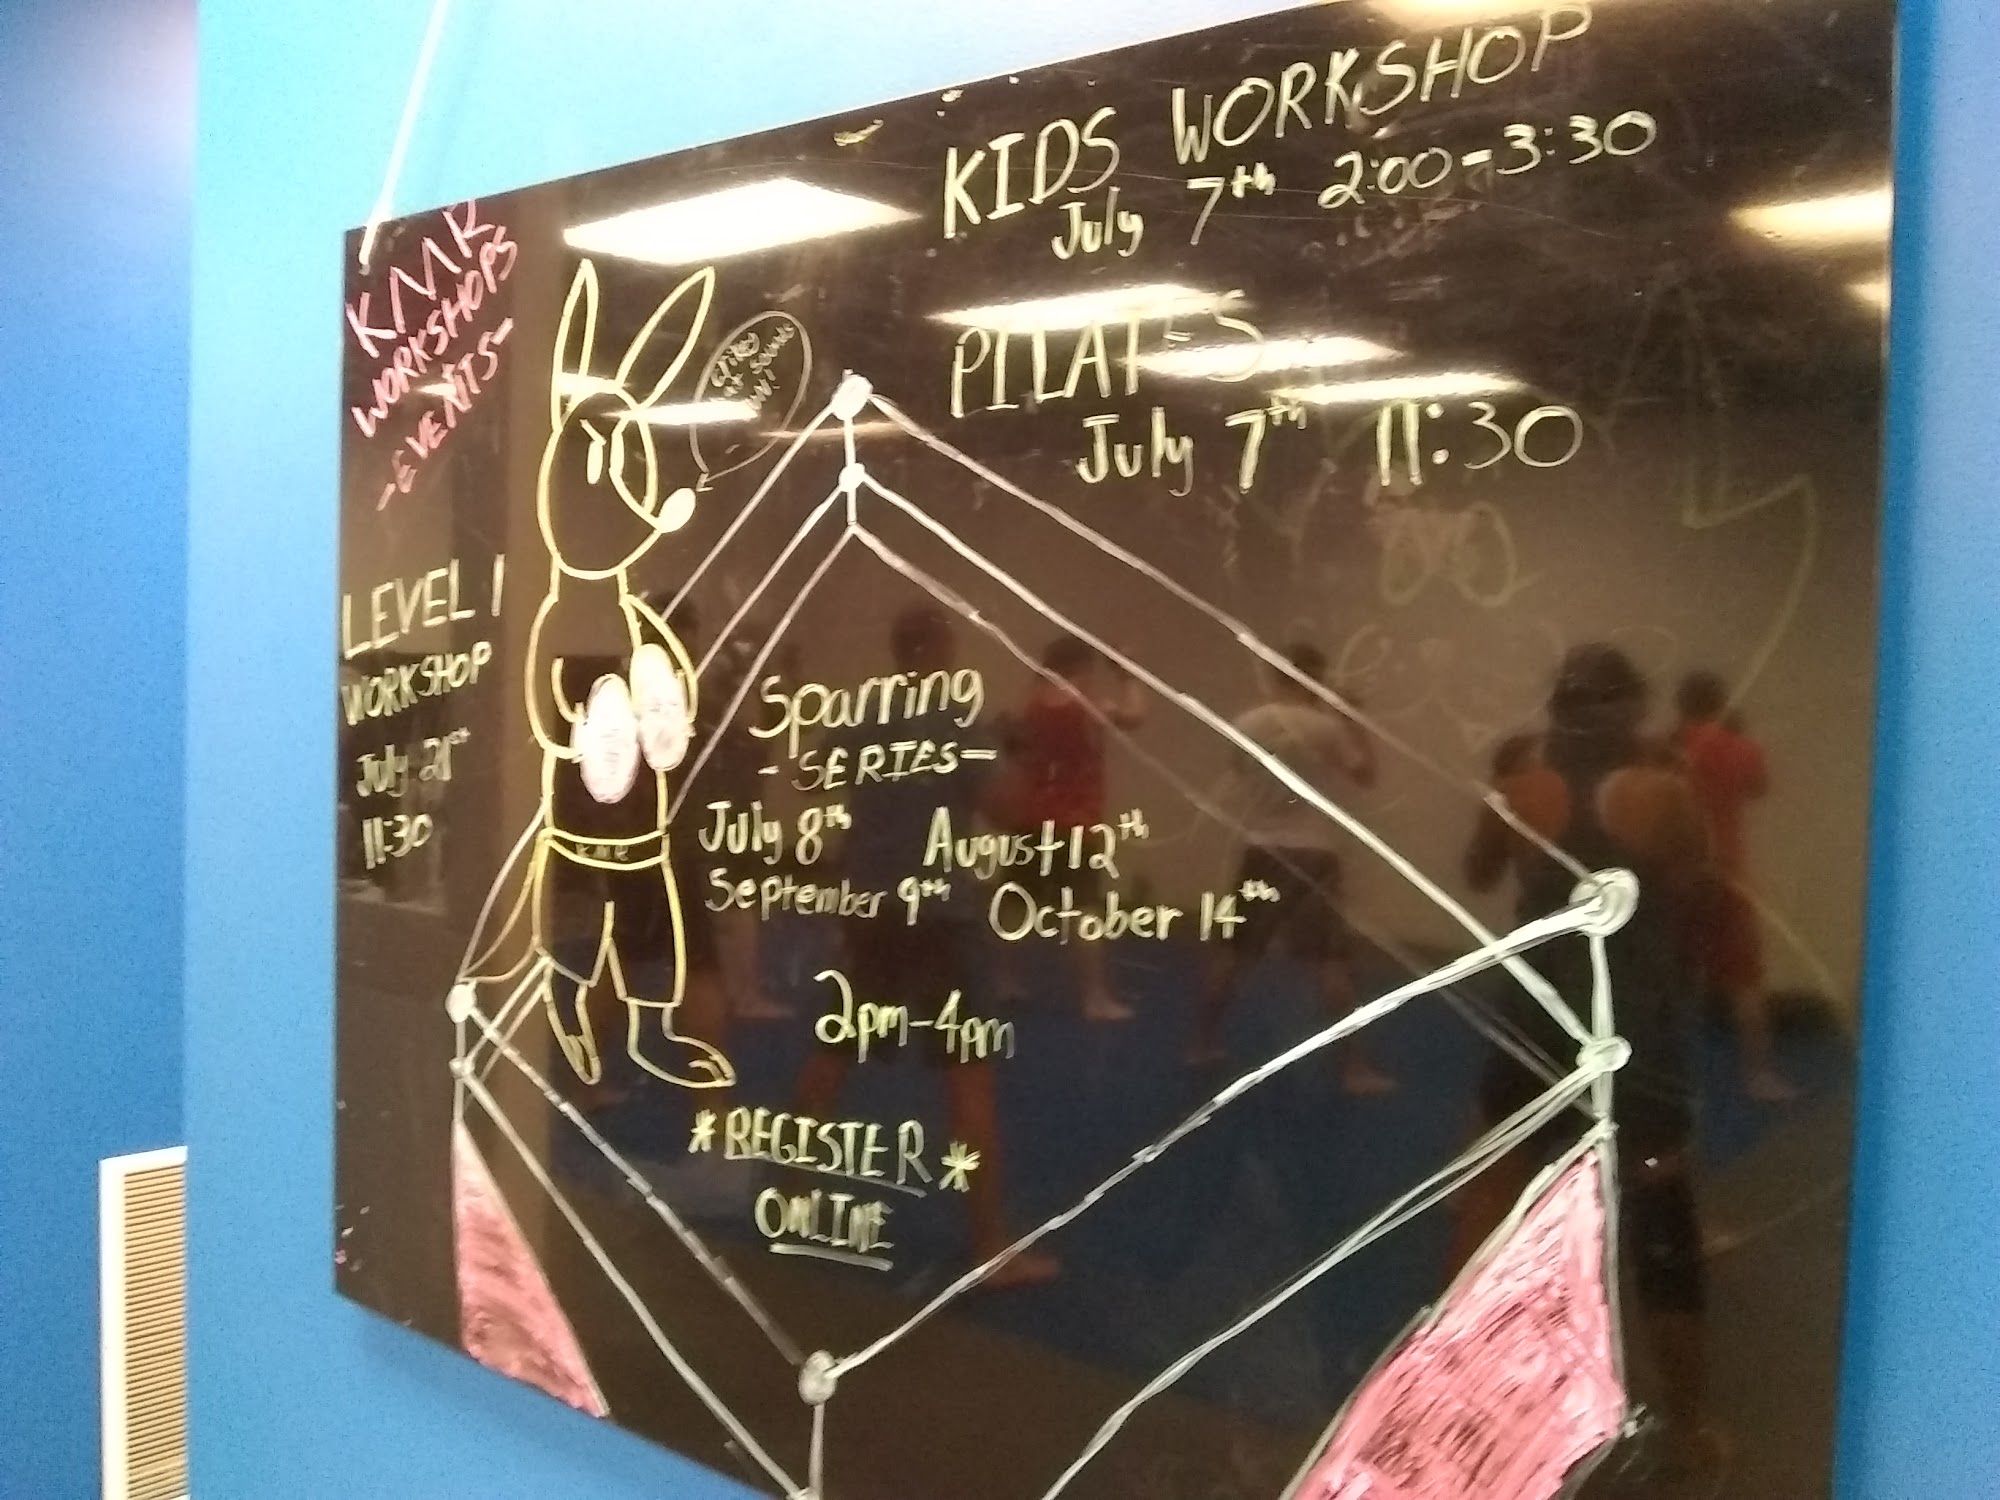 KMR
WORKSHOPS
-EVENTS-
KIDS WORKSHOP
July 7th 2:00-3:30
PILATES
July 7th 11:30
LEVEL 1
WORKSHOP
July 21st
11:30
Sparring
-SERIES-
July 8th August 12th
September 9th October 14th
2pm-4pm
*REGISTER*
ONLINE
KMR